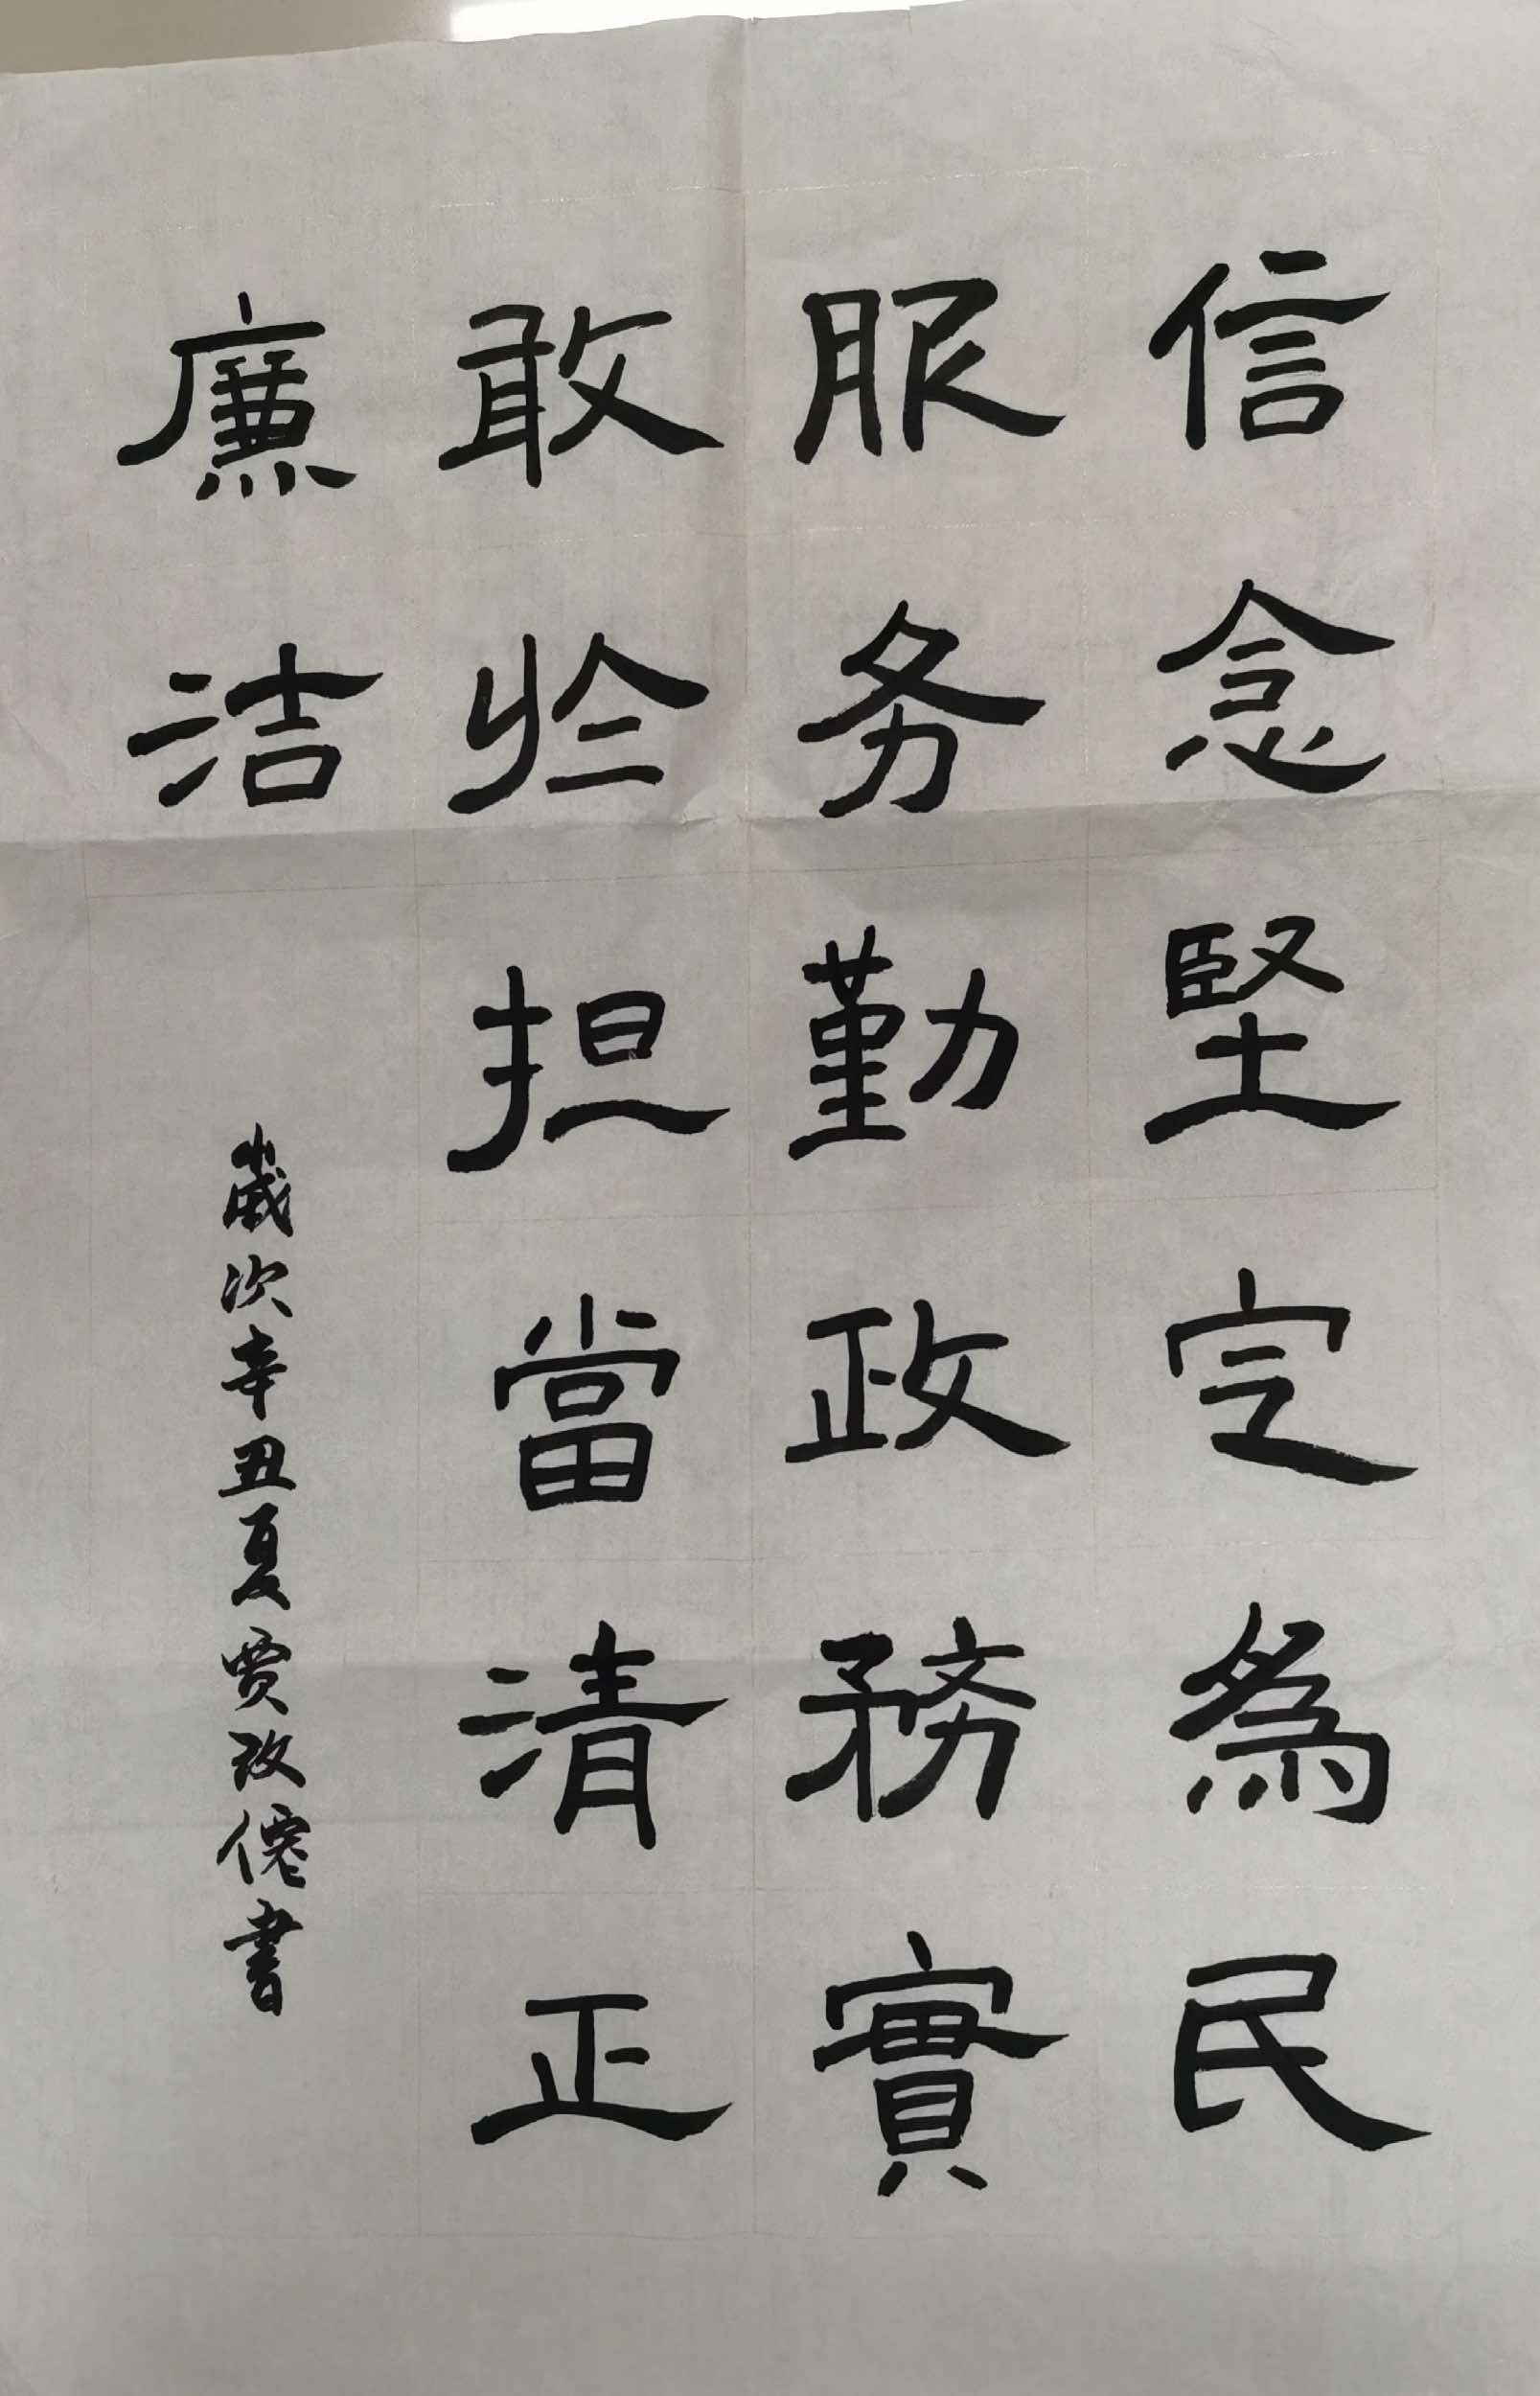 信念堅定為民
服务勤政務實
敢於担當清正
廉洁
歲次辛丑夏贾改僊書